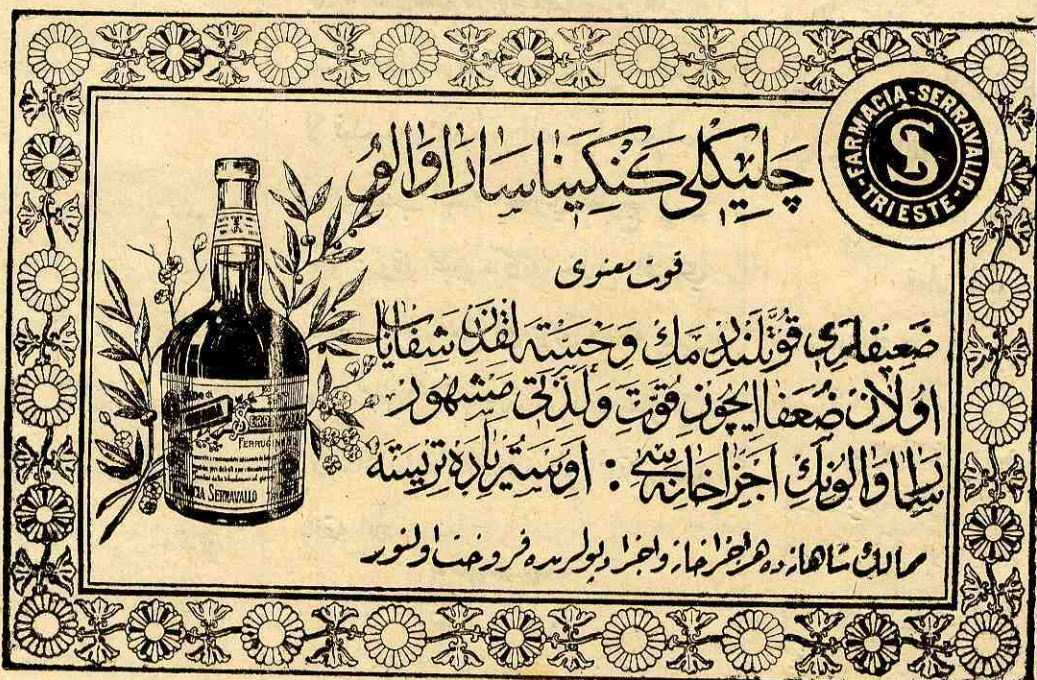 FARMACIA-SERRAVALLO
TRIESTE
S
چلیكلی كنكینا ساراوالو
قوت معنوی
ضعیفلری قوتلندرمك وخسته لقدن شفایاب
اولان ضعفا ایچون قوت ولذتی مشهور
ساراوالونك اجزاخانه سی : اوستریاده تریسته
ممالك شاهانه ده هر اجزاخانه واجزا دپولرنده فروخت اولنور
FERRUGINO
SERRAVALLO